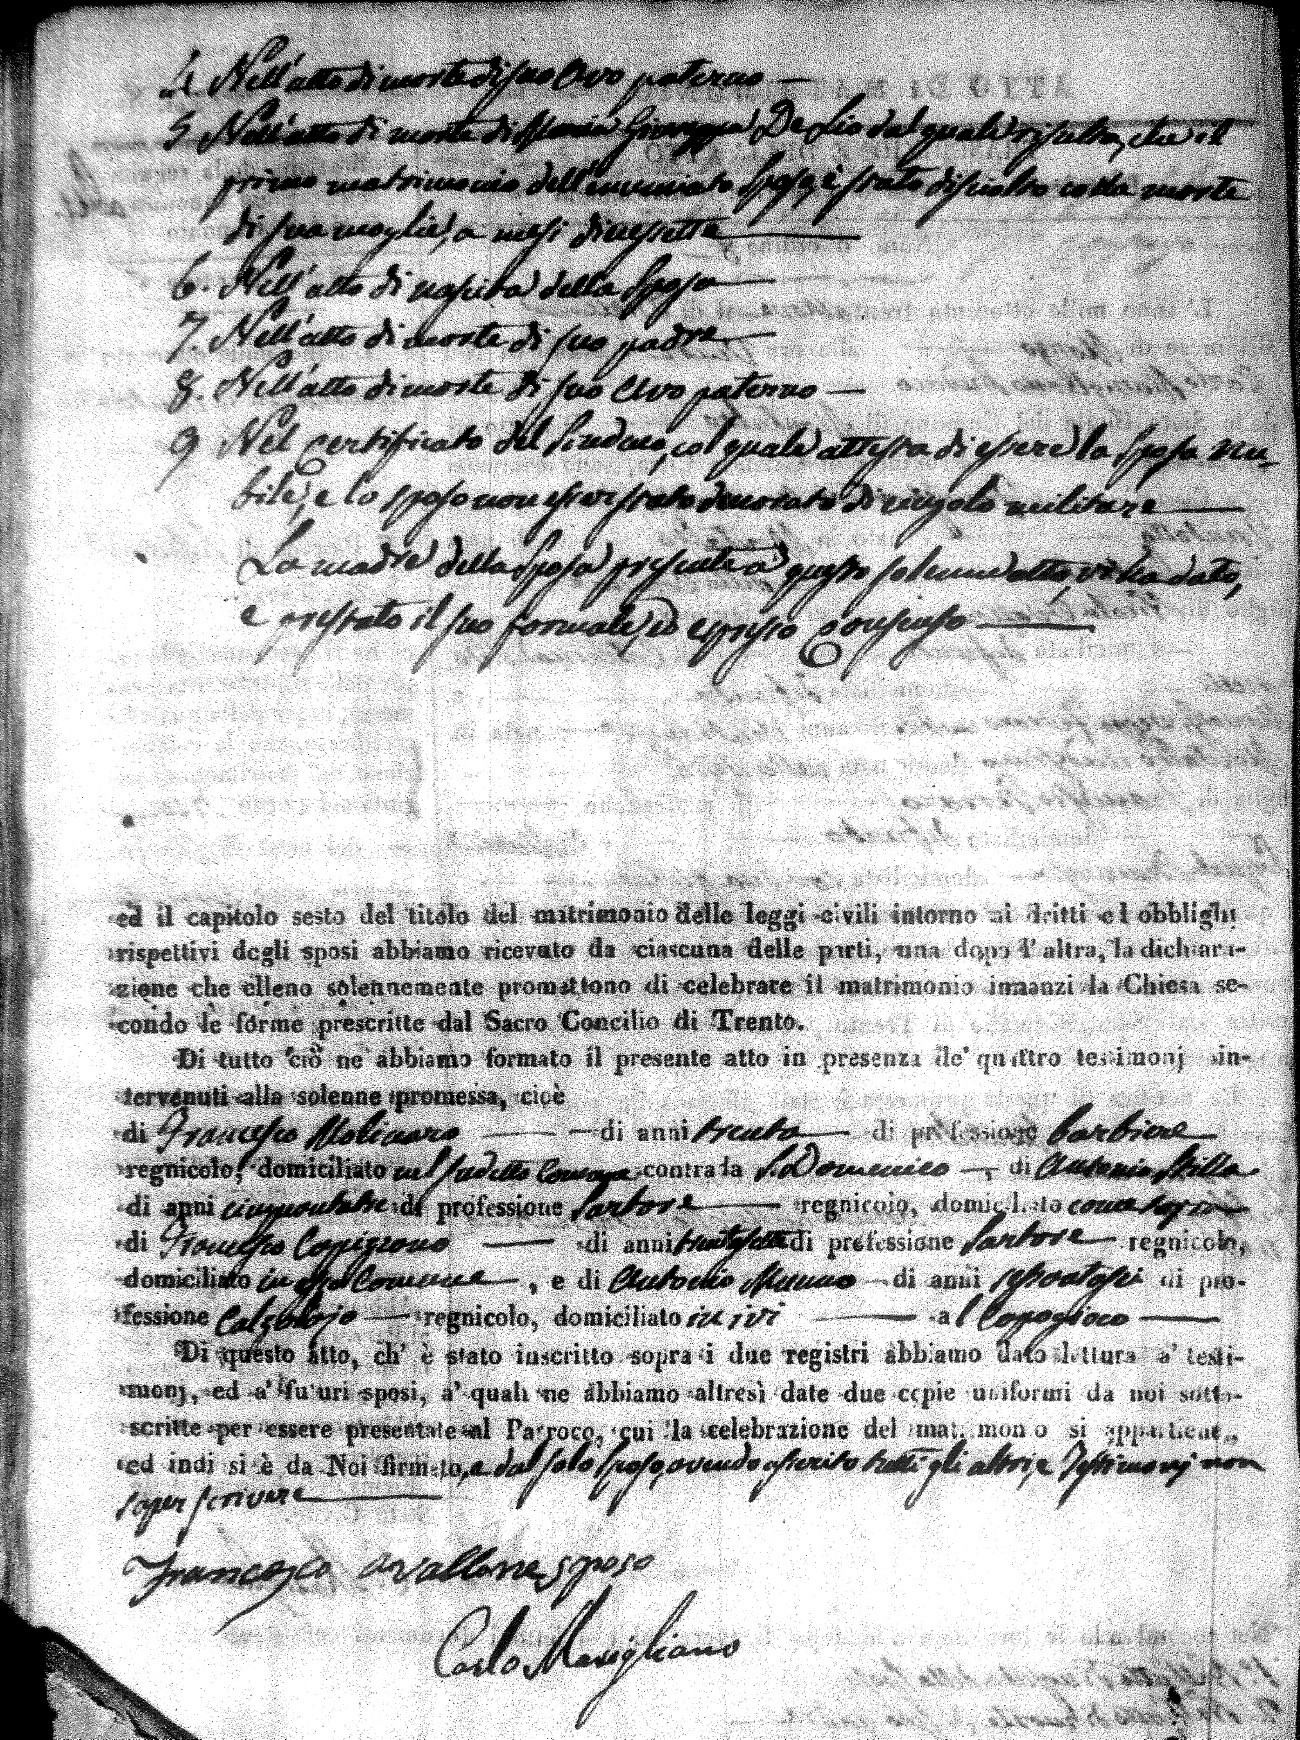 4. Nell'atto di morte di suo Avo paterno —
5. Nell'atto di morte di Maria Giuseppa De Lio dal quale risulta, che il
primo matrimonio dell'enunciato Sposo è stato disciolto colla morte
di sua moglie, a mesi diecisette
6. Nell'atto di nascita della Sposa
7. Nell'atto di morte di suo padre
8. Nell'atto di morte di suo Avo paterno —
9 Nel certificato del Sindaco, col quale attesta di essere la Sposa nu-
bile, e lo sposo non essere stato denotato di vincolo militare
La madre della Sposa presente a questo solenne atto, vi ha dato,
e prestato il suo formale, ed espresso Consenso
ed il capitolo sesto del titolo del matrimonio delle leggi civili intorno ai dritti ed obblighi
rispettivi degli sposi abbiamo ricevuto da ciascuna delle parti, una dopo l'altra, la dichiara-
zione che elleno solennemente promettono di celebrare il matrimonio innanzi la Chiesa se-
condo le forme prescritte dal Sacro Concilio di Trento.
Di tutto ciò ne abbiamo formato il presente atto in presenza de' quattro testimonj in-
tervenuti alla solenne promessa, cioè
di Francesco Molinaro — di anni trenta — di professione barbiere
regnicolo, domiciliato nel sudetto Comune contrada S. Domenico —, di Antonio Stilla
di anni cinquantatre di professione Sartore — regnicolo, domiciliato come sopra
di Francesco Capizzano — di anni trentasette di professione Sartore regnicolo,
domiciliato in essa Comune —, e di Antonio Munno — di anni sessantasei di pro-
fessione Calzolajo — regnicolo, domiciliato in ivi — al Capogioco —
Di questo atto, ch' è stato inscritto sopra i due registri abbiamo dato lettura a' testi-
monj, ed a' futuri sposi, a' quali ne abbiamo altresì date due copie uniformi da noi sotto-
scritte per essere presentate al Parroco, cui la celebrazione del matrimonio si appartiene,
ed indi si è da Noi firmato, e dal solo sposo, avendo asserito tutti gli altri, e Testimonj non
saper scrivere
Francesco Avallone sposo
Carlo Marigliano